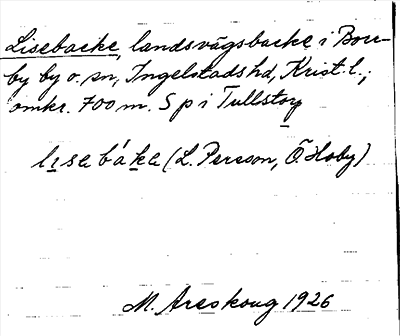 Lisebacke, landsvägsbacke i Borr-
by by o. sn, Ingelstads hd, Krist. l.;
omkr. 700 m. S p i Tullstorp
lisa báka (L. Persson, Ö. Hoby)
M. Areskoug 1926